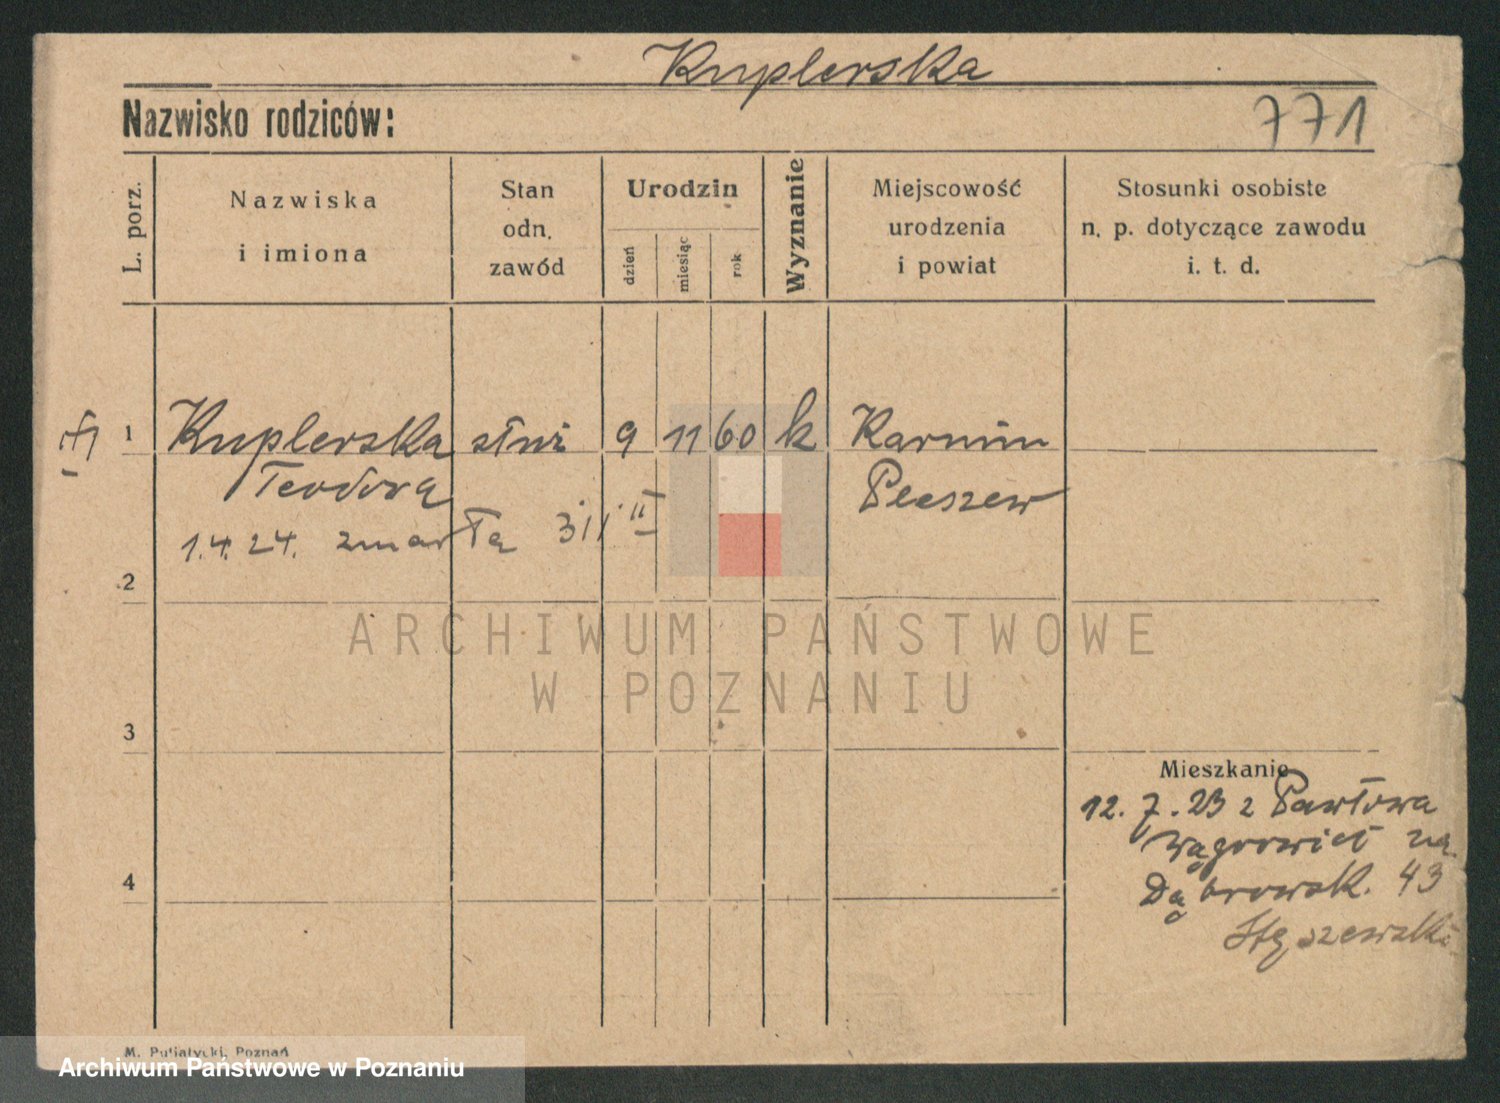 Kuplerska
Nazwisko rodziców:
771
L. porz.
Nazwiska
i imiona
Stan
odn.
zawód
Urodzin
dzień
miesiąc
rok
Wyznanie
Miejscowość
urodzenia
i powiat
Stosunki osobiste
n. p. dotyczące zawodu
i. t. d.
1 Kuplerska służ 9 11 60 k Karmin
Teodora Pleszew
1.4.24. zmarła 31/ II
2
ARCHIWUM PAŃSTWOWE
W POZNANIU
3
Mieszkanie
12. 7. 23 z Pawłowa
Wągrowiec na
4
Dąbrowsk. 43
M. Putiatycki, Poznań
Archiwum Państwowe w Poznaniu